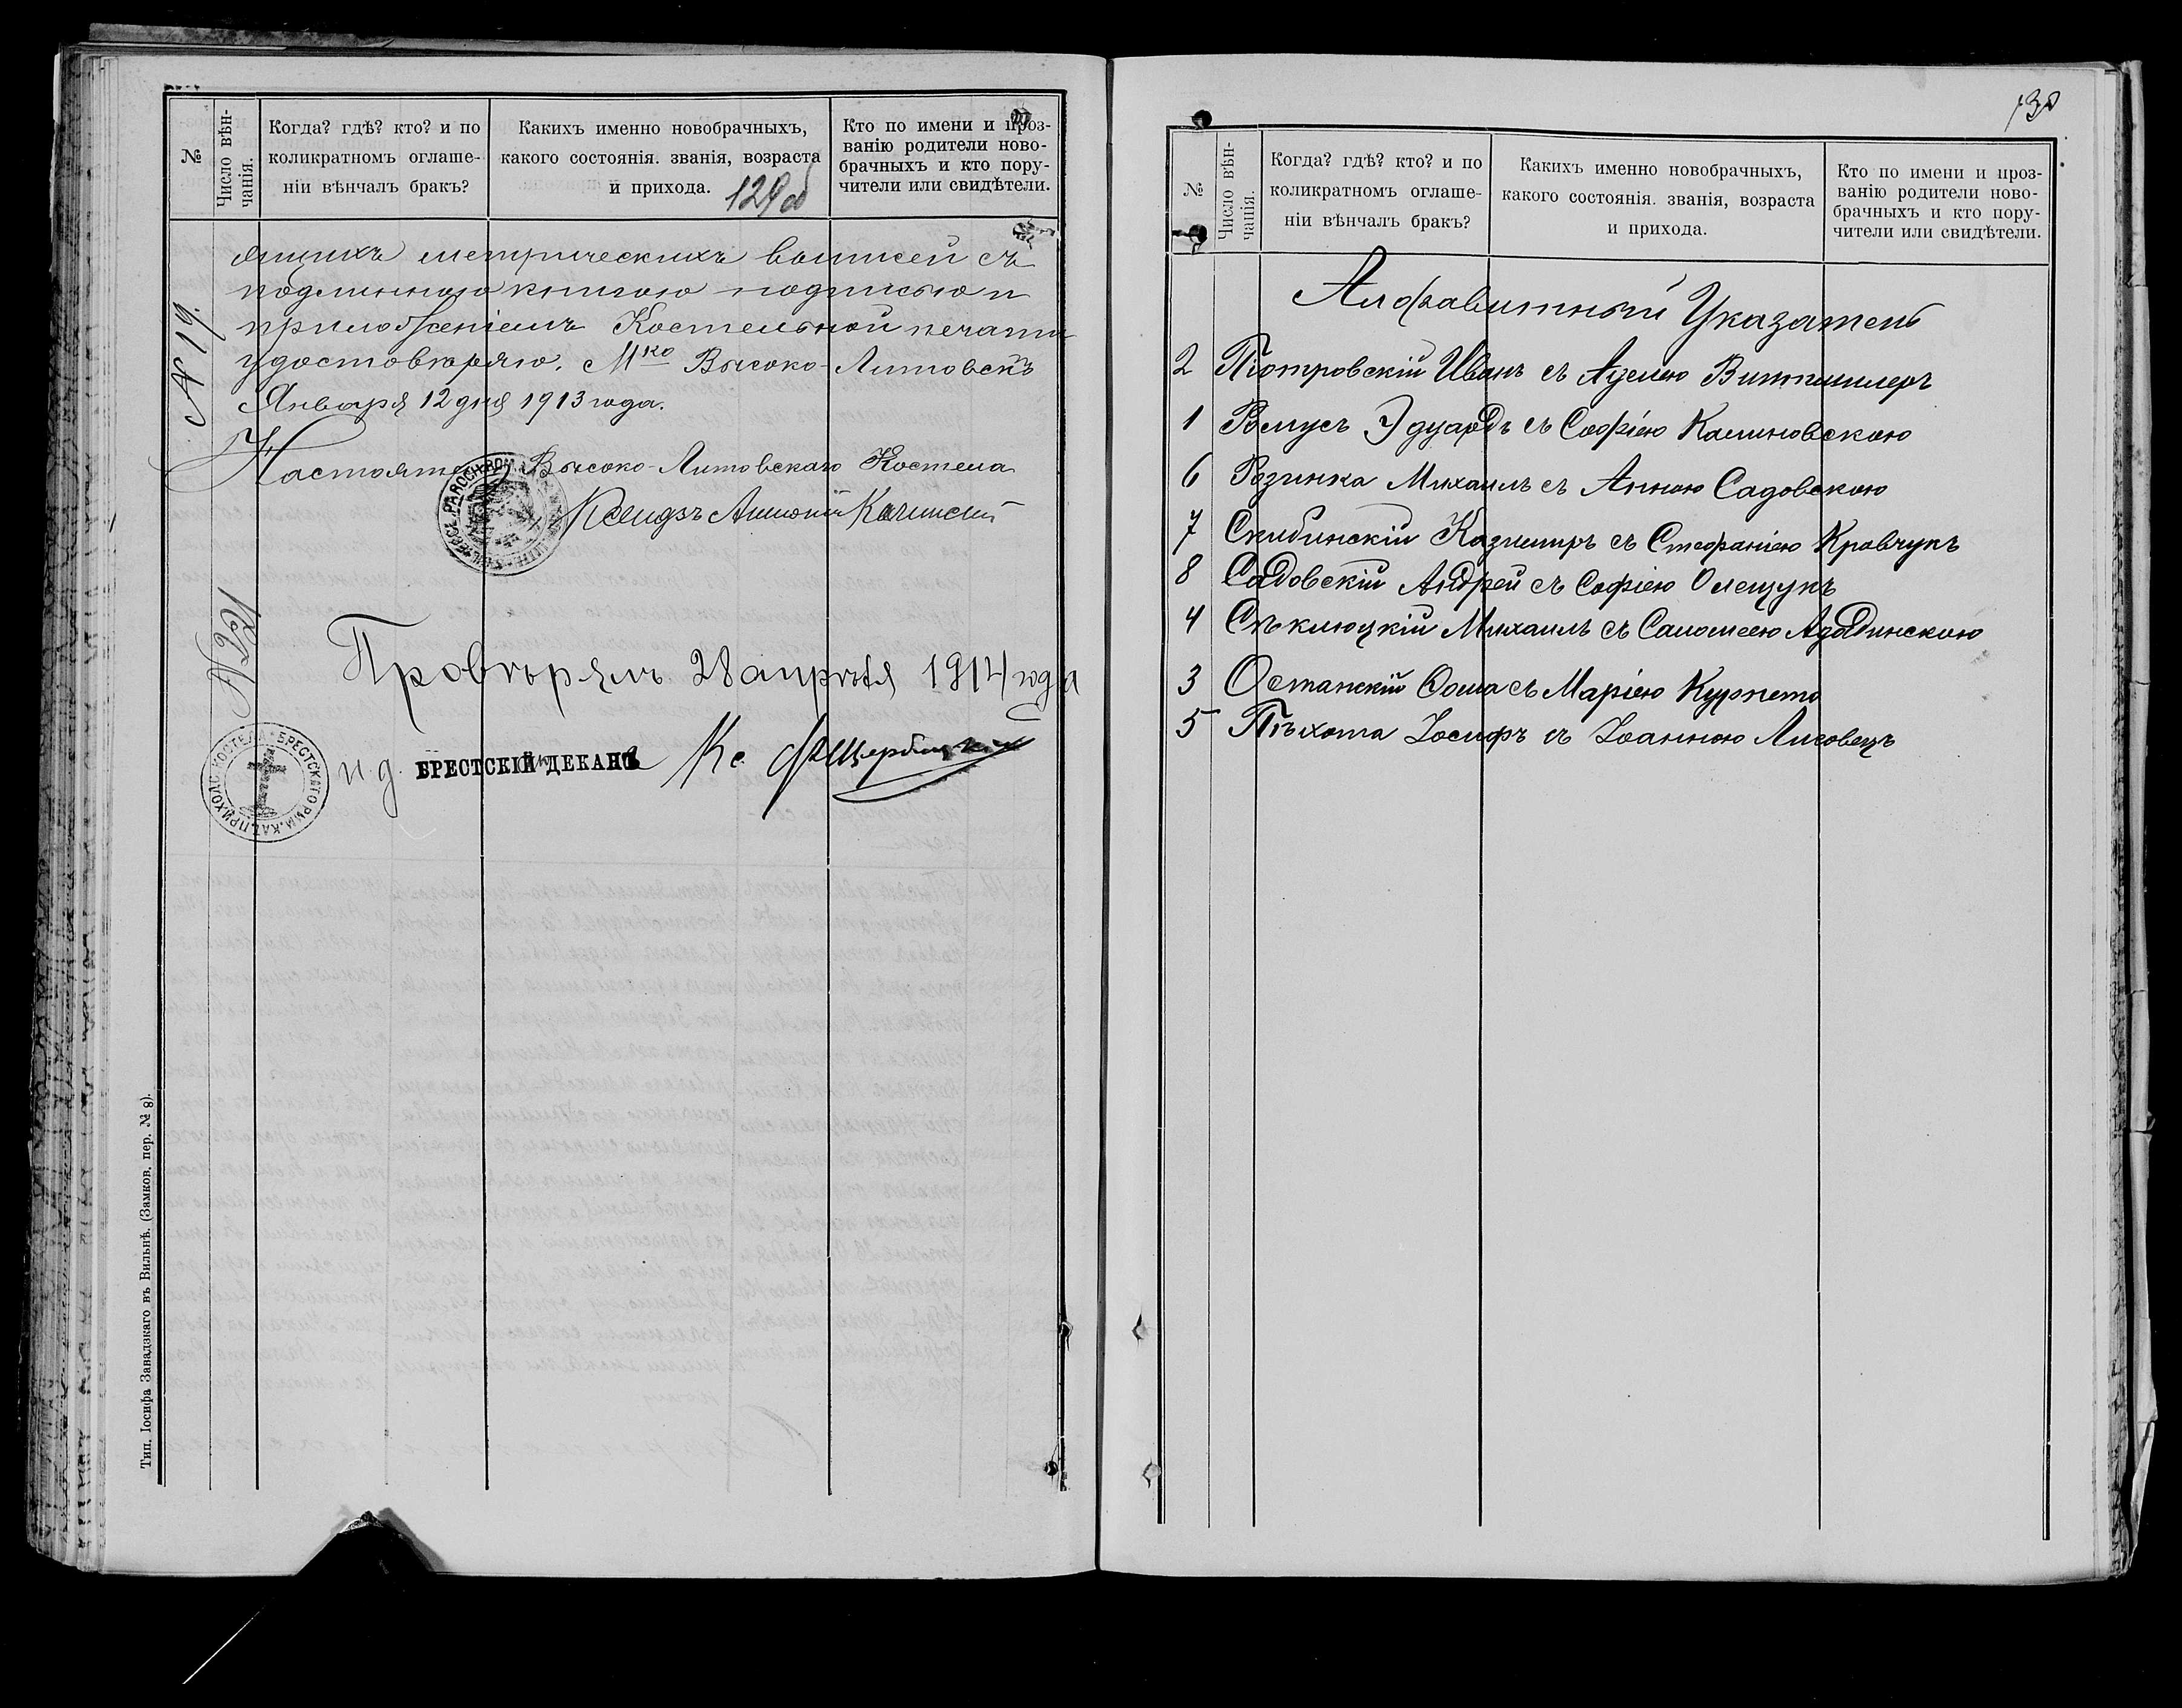 №
Число вѣн-
чанія.
Когда? гдѣ? кто? и по
коликратномъ оглаше-
ніи вѣнчалъ бракъ?
Какихъ именно новобрачныхъ,
какого состоянія. званія, возраста
и прихода.
129 об
Кто по имени и проз-
ванію родители ново-
брачныхъ и кто пору-
чители или свидѣтели.
ящихъ метрическихъ выписей съ
подлинною книгою подписью и
приложеніемъ Костельной печати
удостовѣряю. Мко Высоко-Литовскъ
Января 12 дня 1913 года.
Настоятель Высоко-Литовскаго Костела
Ксендзъ Антоній
№ 19.
Провѣрялъ 28 апрѣля 1914 года
и. д. БРЕСТСКІЙ ДЕКАНЪ Кс.
БРЕСТСКАГО РИМ. КАТ. ПРИХОД. КОСТЕЛА
Тип. Іосифа Завадзкаго въ Вильнѣ. (Замков. пер. № 8).
130
№
Число вѣн-
чанія.
Когда? гдѣ? кто? и по
коликратномъ оглаше-
ніи вѣнчалъ бракъ?
Какихъ именно новобрачныхъ,
какого состоянія. званія, возраста
и прихода.
Кто по имени и проз-
ванію родители ново-
брачныхъ и кто пору-
чители или свидѣтели.
Алфавитный Указатель
2 Піотровскій Иванъ съ Азелею
1 Ремусъ Эдуардъ съ Софіею Калиновскою
6 Розинка Михаилъ съ Анною Садовскою
7 Скибинскій Казимиръ съ Стефаніею Кравчукъ
8 Садовскій Андрей съ Софіею Олещукъ
4 Сѣклюцкій Михаилъ съ Саломеею Аздадинскою
3 Останскій Ѳома съ Маріею
5 Пѣхота Іосифъ съ Іоанною Лисовецъ